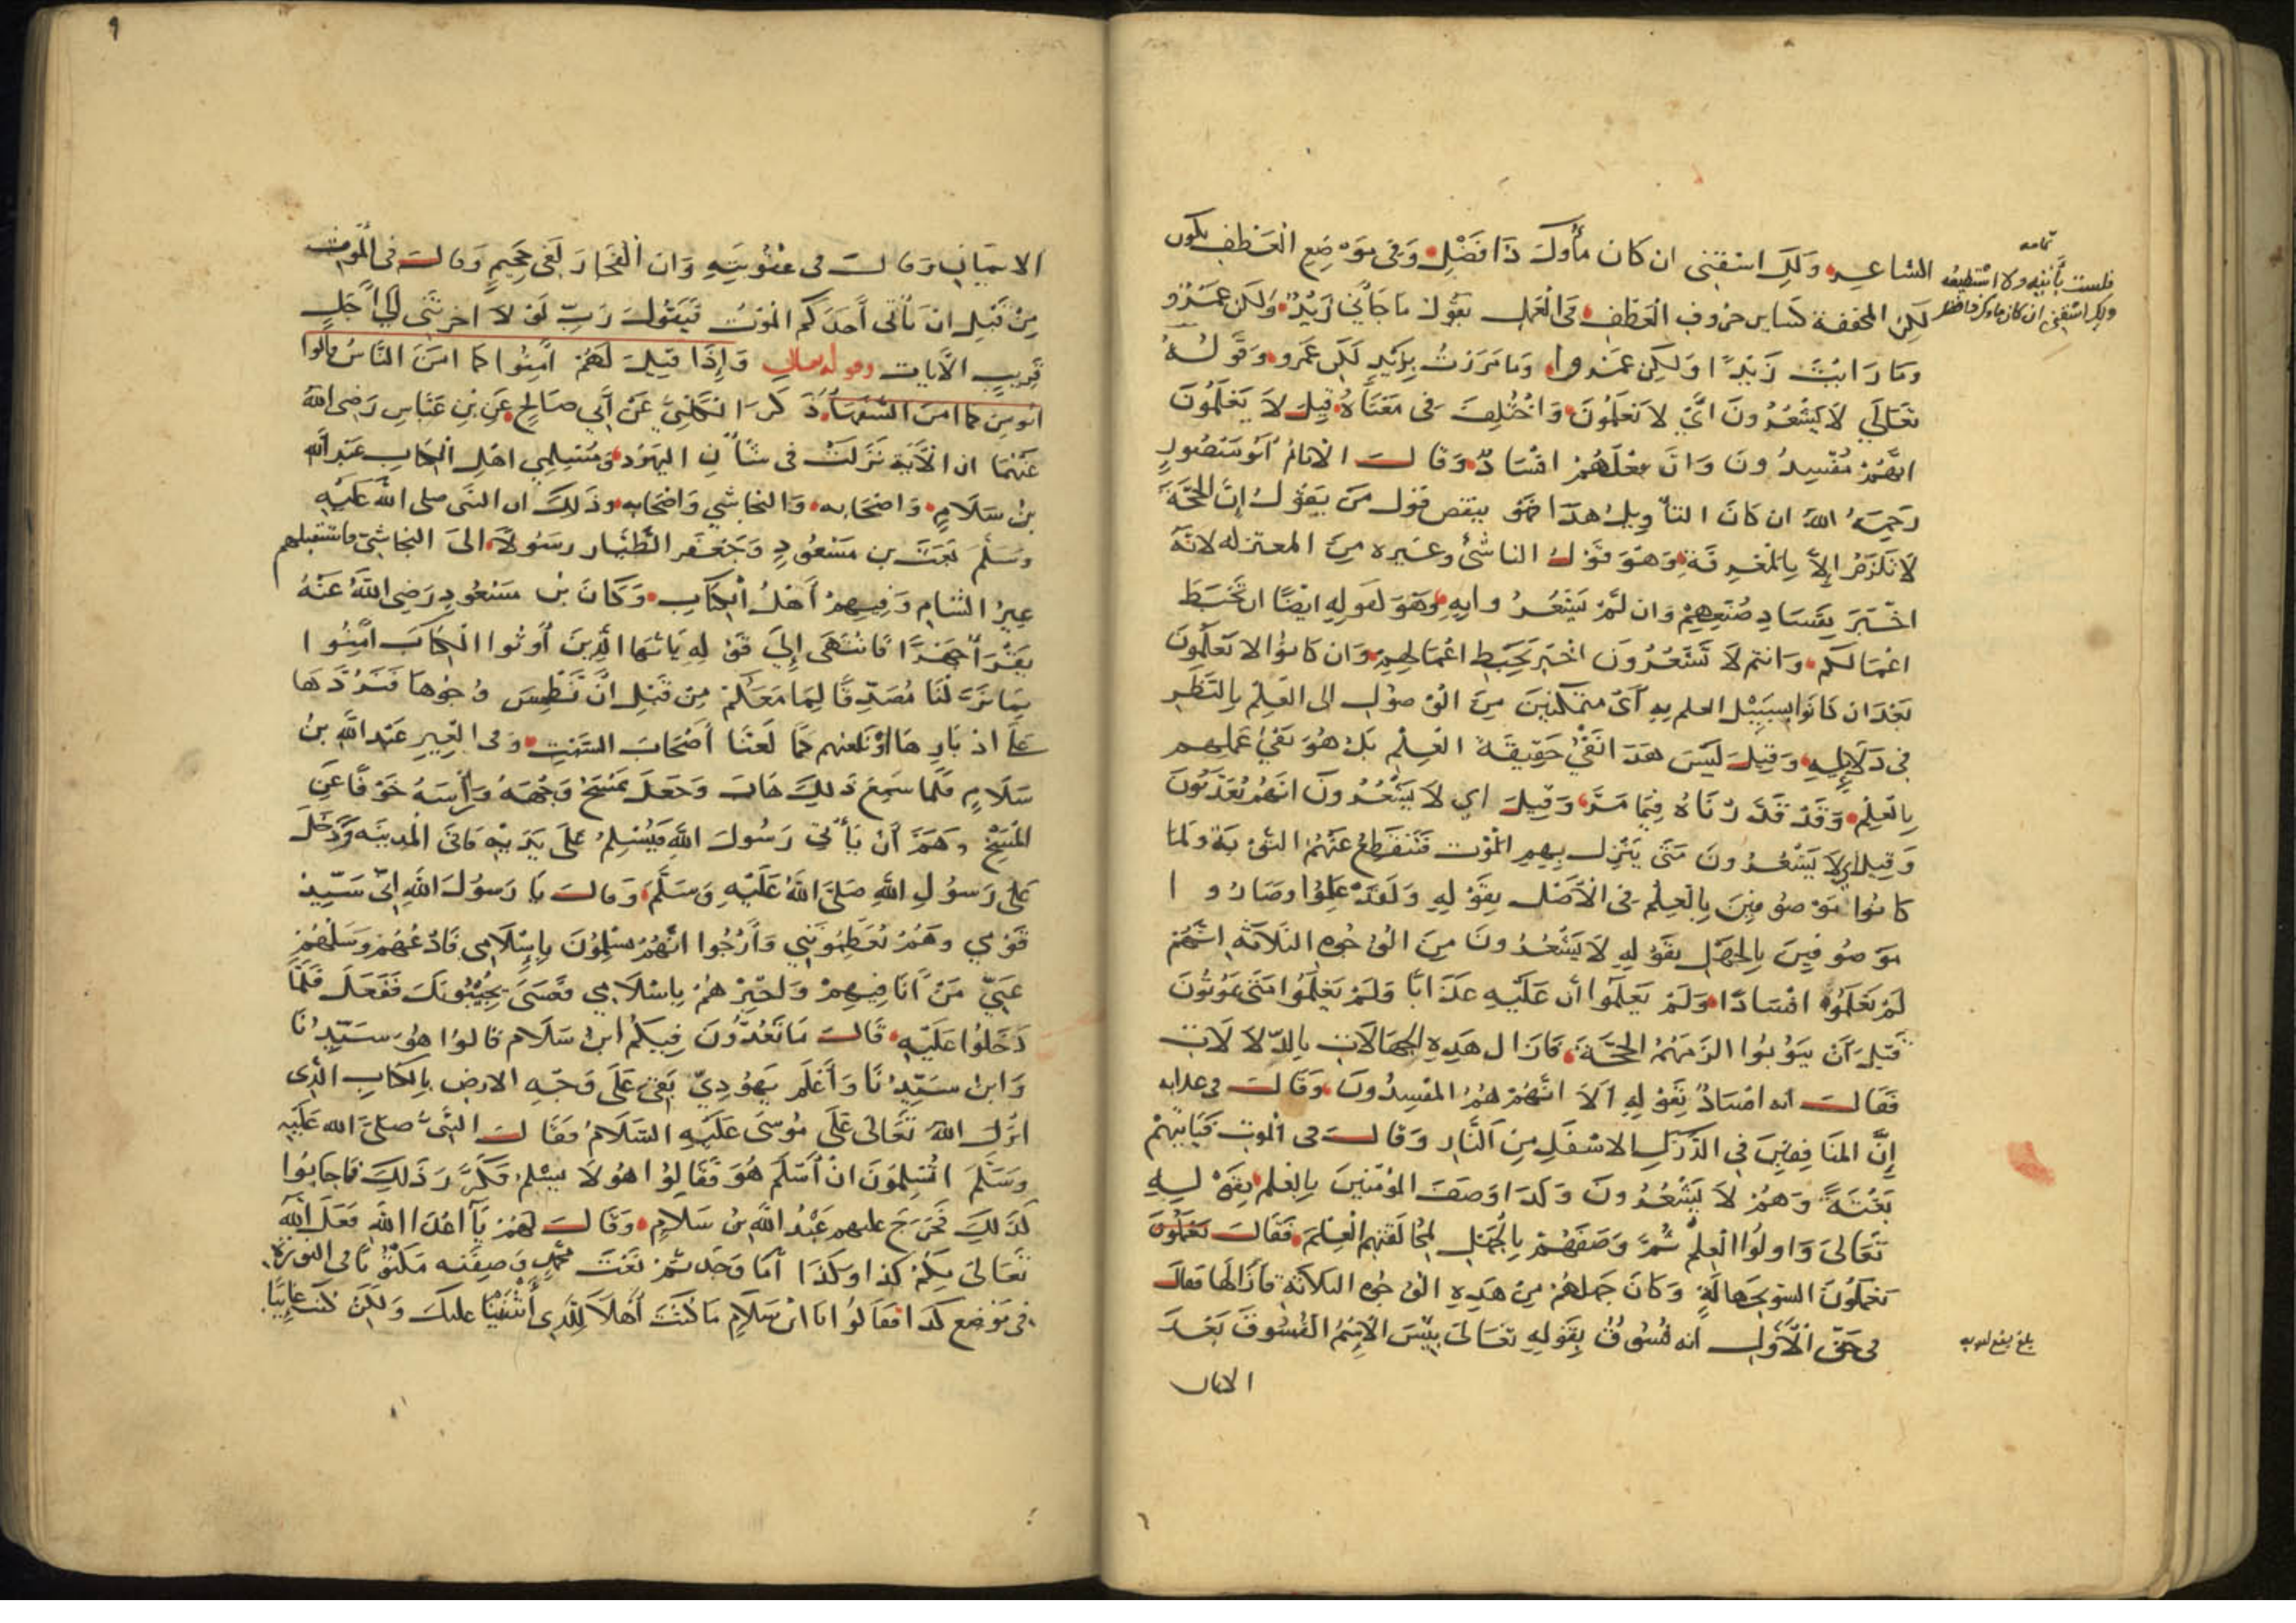 الشاعر ولك اسقني ان كان مأوك ذا فضل وفي موضع العطف يكون
تمامه
فلست بآتيه ولا استطيعه
ولك اسقني ان كان ماوك ذا فضل
لكن المخففة كساير حروف العطف في العمل تقول ما جاني زيد ولكن عمرو
وما رايت زيدا ولكن عمروا وما مررت بزيد لكن عمرو وقوله
تعالى لا يشعرون اي لا تعلمون واختلف في معناه قيل لا يعلمون
انهم مفسدون وان فعلهم افساد وقال الامام ابو منصور
رحمه الله ان كان التأويل هذا فهو ينقض قول من يقول ان الحجة
لا تلزم الا بالمعرفة وهو قول الناشئ وغيره من المعتزله لانه
اخبر بفساد صنعهم وان لم يشعروا به وهو لقوله ايضا ان تحبط
اعمالكم وانتم لا تشعرون اخبر بحبط اعمالهم وان كانوا لا تعلمون
بعد ان كانوا بسبيل العلم به اي متمكنين من الوصول الى العلم بالنظر
في دلايله وقيل ليس هذا نفي حقيقة العلم بل هو نفي عملهم
بالعلم وقد قدرناه فيما مر وقيل اي لا يشعرون انهم يعذبون
وقيل اي لا يشعرون متى ينزل بهم الموت فتنقطع عنهم التوبة ولما
كانوا موصوفين بالعلم في الاصل بقوله ولقد علموا وصاروا
موصوفين بالجهل بقوله لا يشعرون من الوجوه الثلاثة انهم
لم يعلموه افسادا ولم يعلموا أن عليه عذابا ولم يعلموا متى يموتون
قبل أن يتوبوا الزمهم الحجة فازال هذه الجهالات بالدلالات
فقال انه افساد بقوله الا انهم هم المفسدون وقال في عذابه
إن المنافقين في الدرك الاسفل من النار وقال في الموت فيأتيهم
بغتة وهم لا يشعرون وكذا وصف المؤمنين بالعلم بقوله
تعالى واولوا العلم ثم وصفهم بالجهل لمخالفتهم العلم فقال يعملون
تعملون السو بجهالة وكان جهلهم من هذه الوجوه الثلاثة فازالها فقال
في حق الاول انه فسوق بقوله تعالى بيس الاسم الفسوق بعد
الايمان
٩
الايمان وقال في عقوبته وان الفجار لفي جحيم وقال في الموت
من قبل ان ياتي أحدكم الموت فيقول رب لولا اخرتني الى اجل
قريب الآيات وقوله تعالى وإذا قيل لهم آمنوا كما امن الناس قالوا
انومن كما امن السفهاء ذكر الكلبي عن أبي صالح عن بن عباس رضي الله
عنهما ان الآية نزلت في شأن اليهود ومسلمي اهل الكتاب عبد الله
بن سلام واصحابه والنجاشي واصحابه وذلك ان النبي صلى الله عليه
وسلم بعث بن مسعود وجعفر الطيار رسولا الى النجاشي فاستقبلهم
عير الشام وفيهم أهل الكتاب وكان بن مسعود رضي الله عنه
يقرأ جهرا فانتهى إلى قوله يا ايها الذين أوتوا الكتاب امنوا
بما نزلنا مصدقا لما معكم من قبل ان نطمس وجوها فنردها
على ادبارها او نلعنهم كما لعنا أصحاب السبت وفي العير عبد الله بن
سلام فلما سمع ذلك هاب وجعل يمسح وجهه وراسه خوفا عن
المسخ وهم أن يأتي رسول الله فيسلم على يديه فاتى المدينه ودخل
على رسول الله صلى الله عليه وسلم وقال يا رسول الله اني سيد
قومي وهم يعظمونني وأرجوا انهم يسلمون بإسلامي فادعهم وسلهم
عني من انا فيهم ولا تخبرهم باسلامي فعسى يجيبونك ففعل فلما
دخلوا عليه قال ما تعدون فيكم ابن سلام قالوا هو سيدنا
وابن سيدنا وأعلم يهودي بقي على وجه الارض بالكتاب الذي
انزل الله تعالى على موسى عليه السلام فقال النبي صلى الله عليه
وسلم اتسلمون ان أسلم هو فقالوا هو لا يسلم فكرر ذلك فاجابوا
كذلك فخرج عليهم عبد الله بن سلام وقال لهم يا اعدا الله فعل الله
تعالى بكم كذا وكذا أما وجدتم نعت محمد وصفته مكتوبا في التورية
في موضع كذا فقالوا انا ابن سلام ما كنت أهلا للذي أثنينا عليك ولكن كنت غايبا